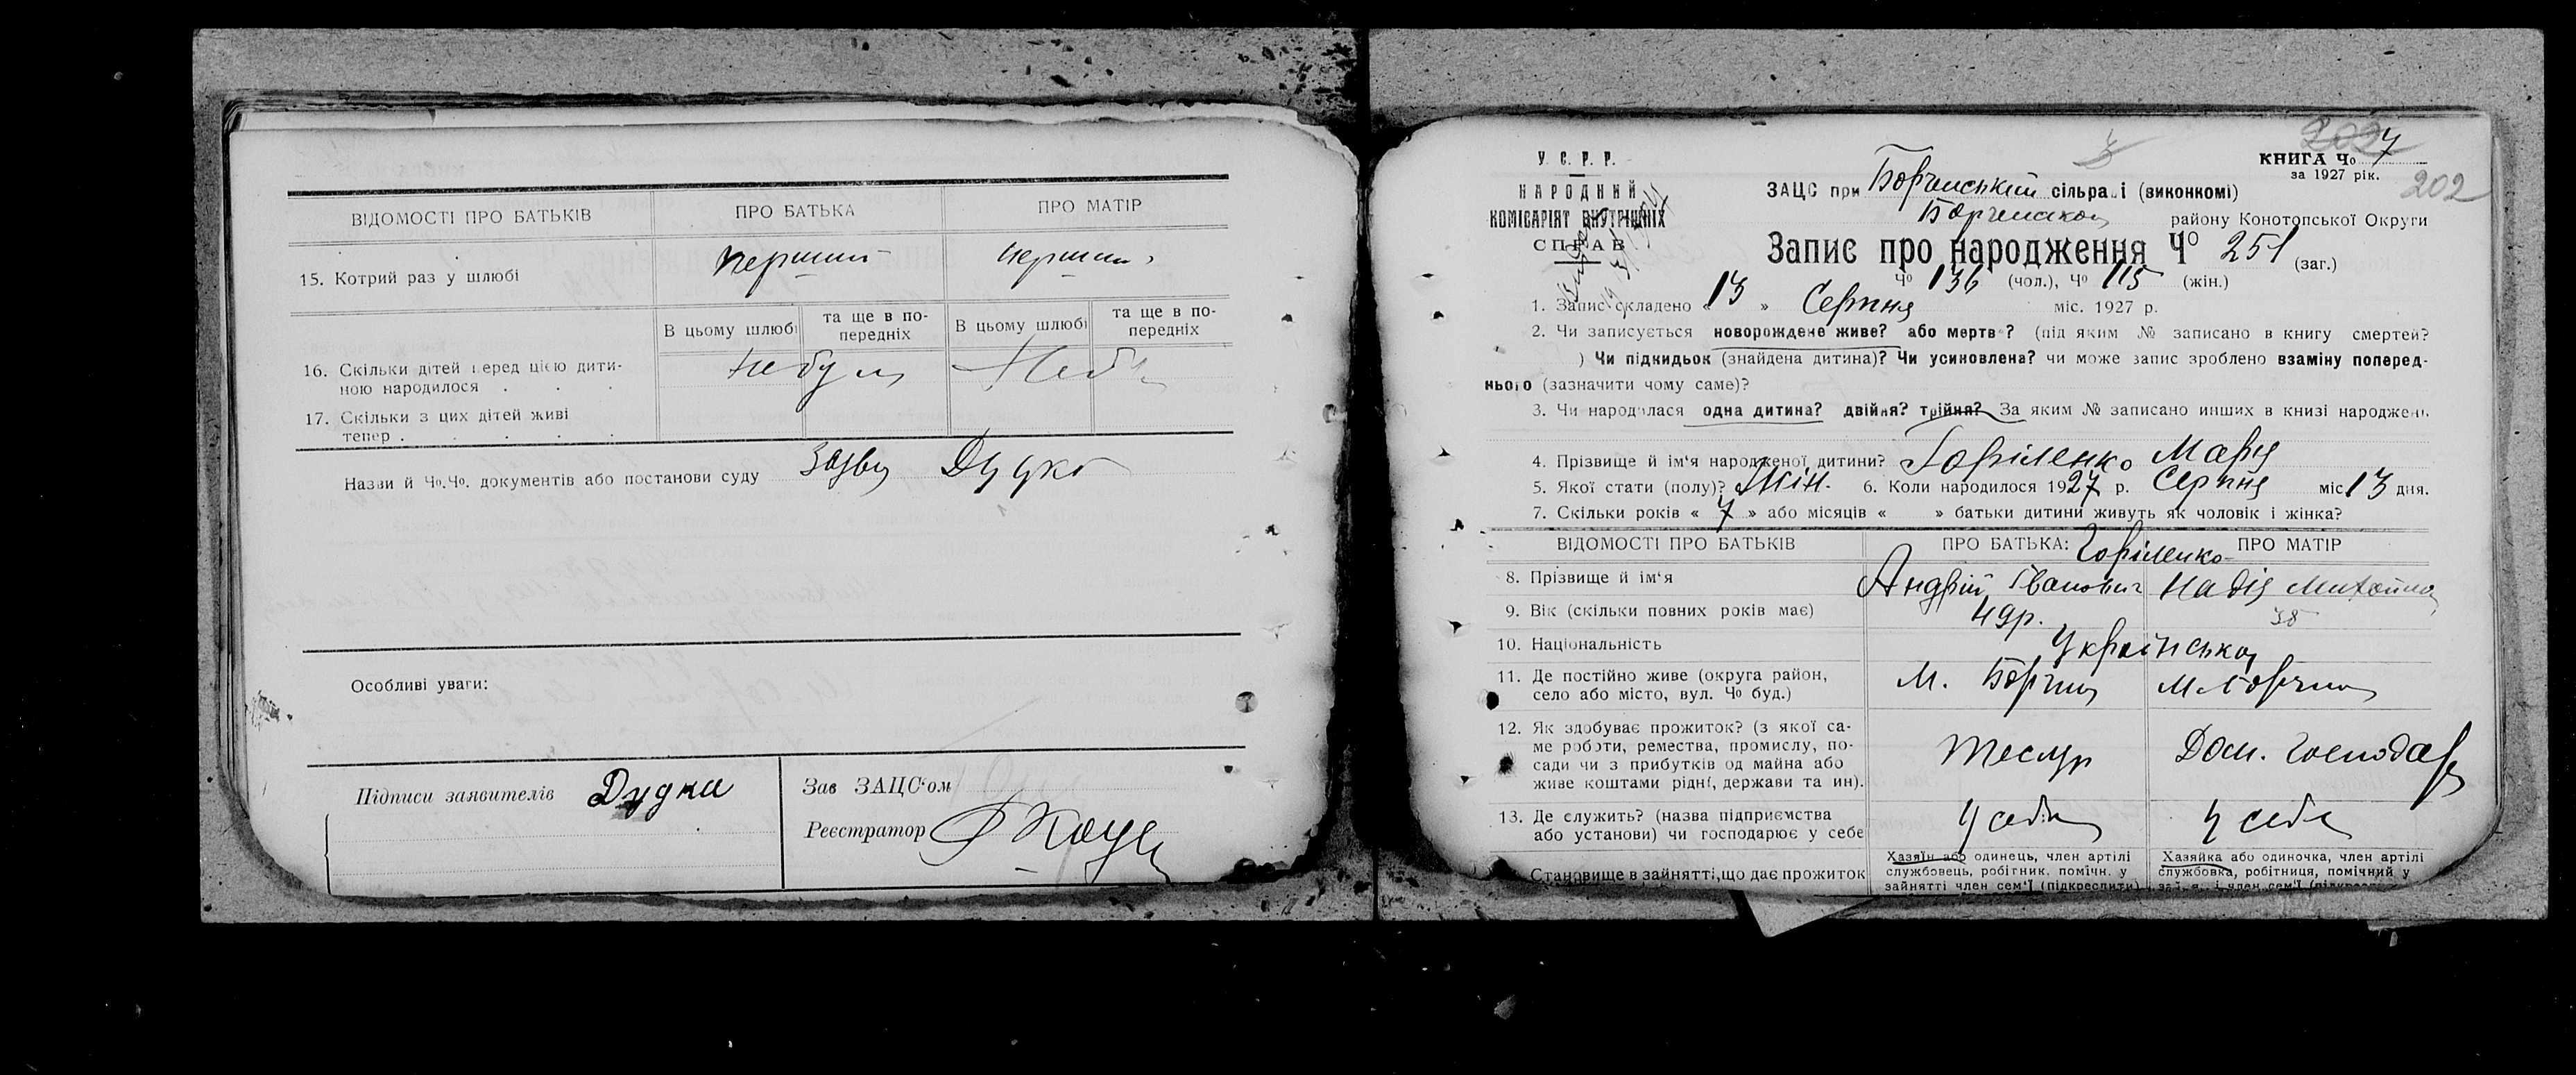 ВІДОМОСТІ ПРО БАТЬКІВ
ПРО БАТЬКА
ПРО МАТІР
15. Котрий раз у шлюбі
перший
перший
В цьому шлюбі
та ще в по-
передніх
В цьому шлюбі
та ще в по-
передніх
16. Скільки дітей перед цією дити-
ною народилося
не було
17. Скільки з цих дітей живі
тепер
Назви й Чо.Чо. документів або постанови суду
Дудко
Особливі уваги:
Підписи заявителів Дудка
Зав ЗАЦС'ом
Реєстратор
У. С. Р. Р.
НАРОДНИЙ
КОМІСАРІЯТ ВНУТРІШНІХ
СПРАВ
КНИГА Чо 7
за 1927 рік.
202
ЗАЦС при Борченський сільраді (виконкомі)
району Конотопської Округи
Запис про народження Чо 251 (заг.)
Чо 136 (чол.), Чо 115 (жін.)
1. Запис складено « 13 » Серпня міс. 1927 р.
2. Чи записується новорождене живе? або мертве? (під яким № записано в книгу смертей?
) Чи підкидьок (знайдена дитина)? Чи усиновлена? чи може запис зроблено взаміну поперед-
нього (зазначити чому саме)?
3. Чи народилася одна дитина? двійня? трійня? За яким № записано инших в книзі народжень
4. Прізвище й ім'я народженої дитини? Горіленко Марія
5. Якої стати (полу)? Жін. 6. Коли народилося 1927 р. Серпня міс 13 дня.
7. Скільки років « 7 » або місяців « » батьки дитини живуть як чоловік і жінка?
ВІДОМОСТІ ПРО БАТЬКІВ
ПРО БАТЬКА:
ПРО МАТІР
Горіленко
8. Прізвище й ім'я
Андрій Іванович
Надія
9. Вік (скільки повних років має)
49р.
38
10. Національність
Українська
11. Де постійно живе (округа район,
село або місто, вул. Чо буд.)
М. Борзна
М. Борзна
12. Як здобуває прожиток? (з якої са-
ме роботи, ремества, промислу, по-
сади чи з прибутків од майна або
живе коштами рідні, держави та ин).
Тесляр
Дом. господар
13. Де служить? (назва підприємства
або установи) чи господарює у себе
У себе
У себе
Становище в зайнятті, що дає прожиток
Хазяїн або одинець, член артілі
службовець, робітник, помічн. у
зайнятті член сем'ї (підкреслити)
Хазяйка або одиночка, член артілі
службовка, робітниця, помічний у